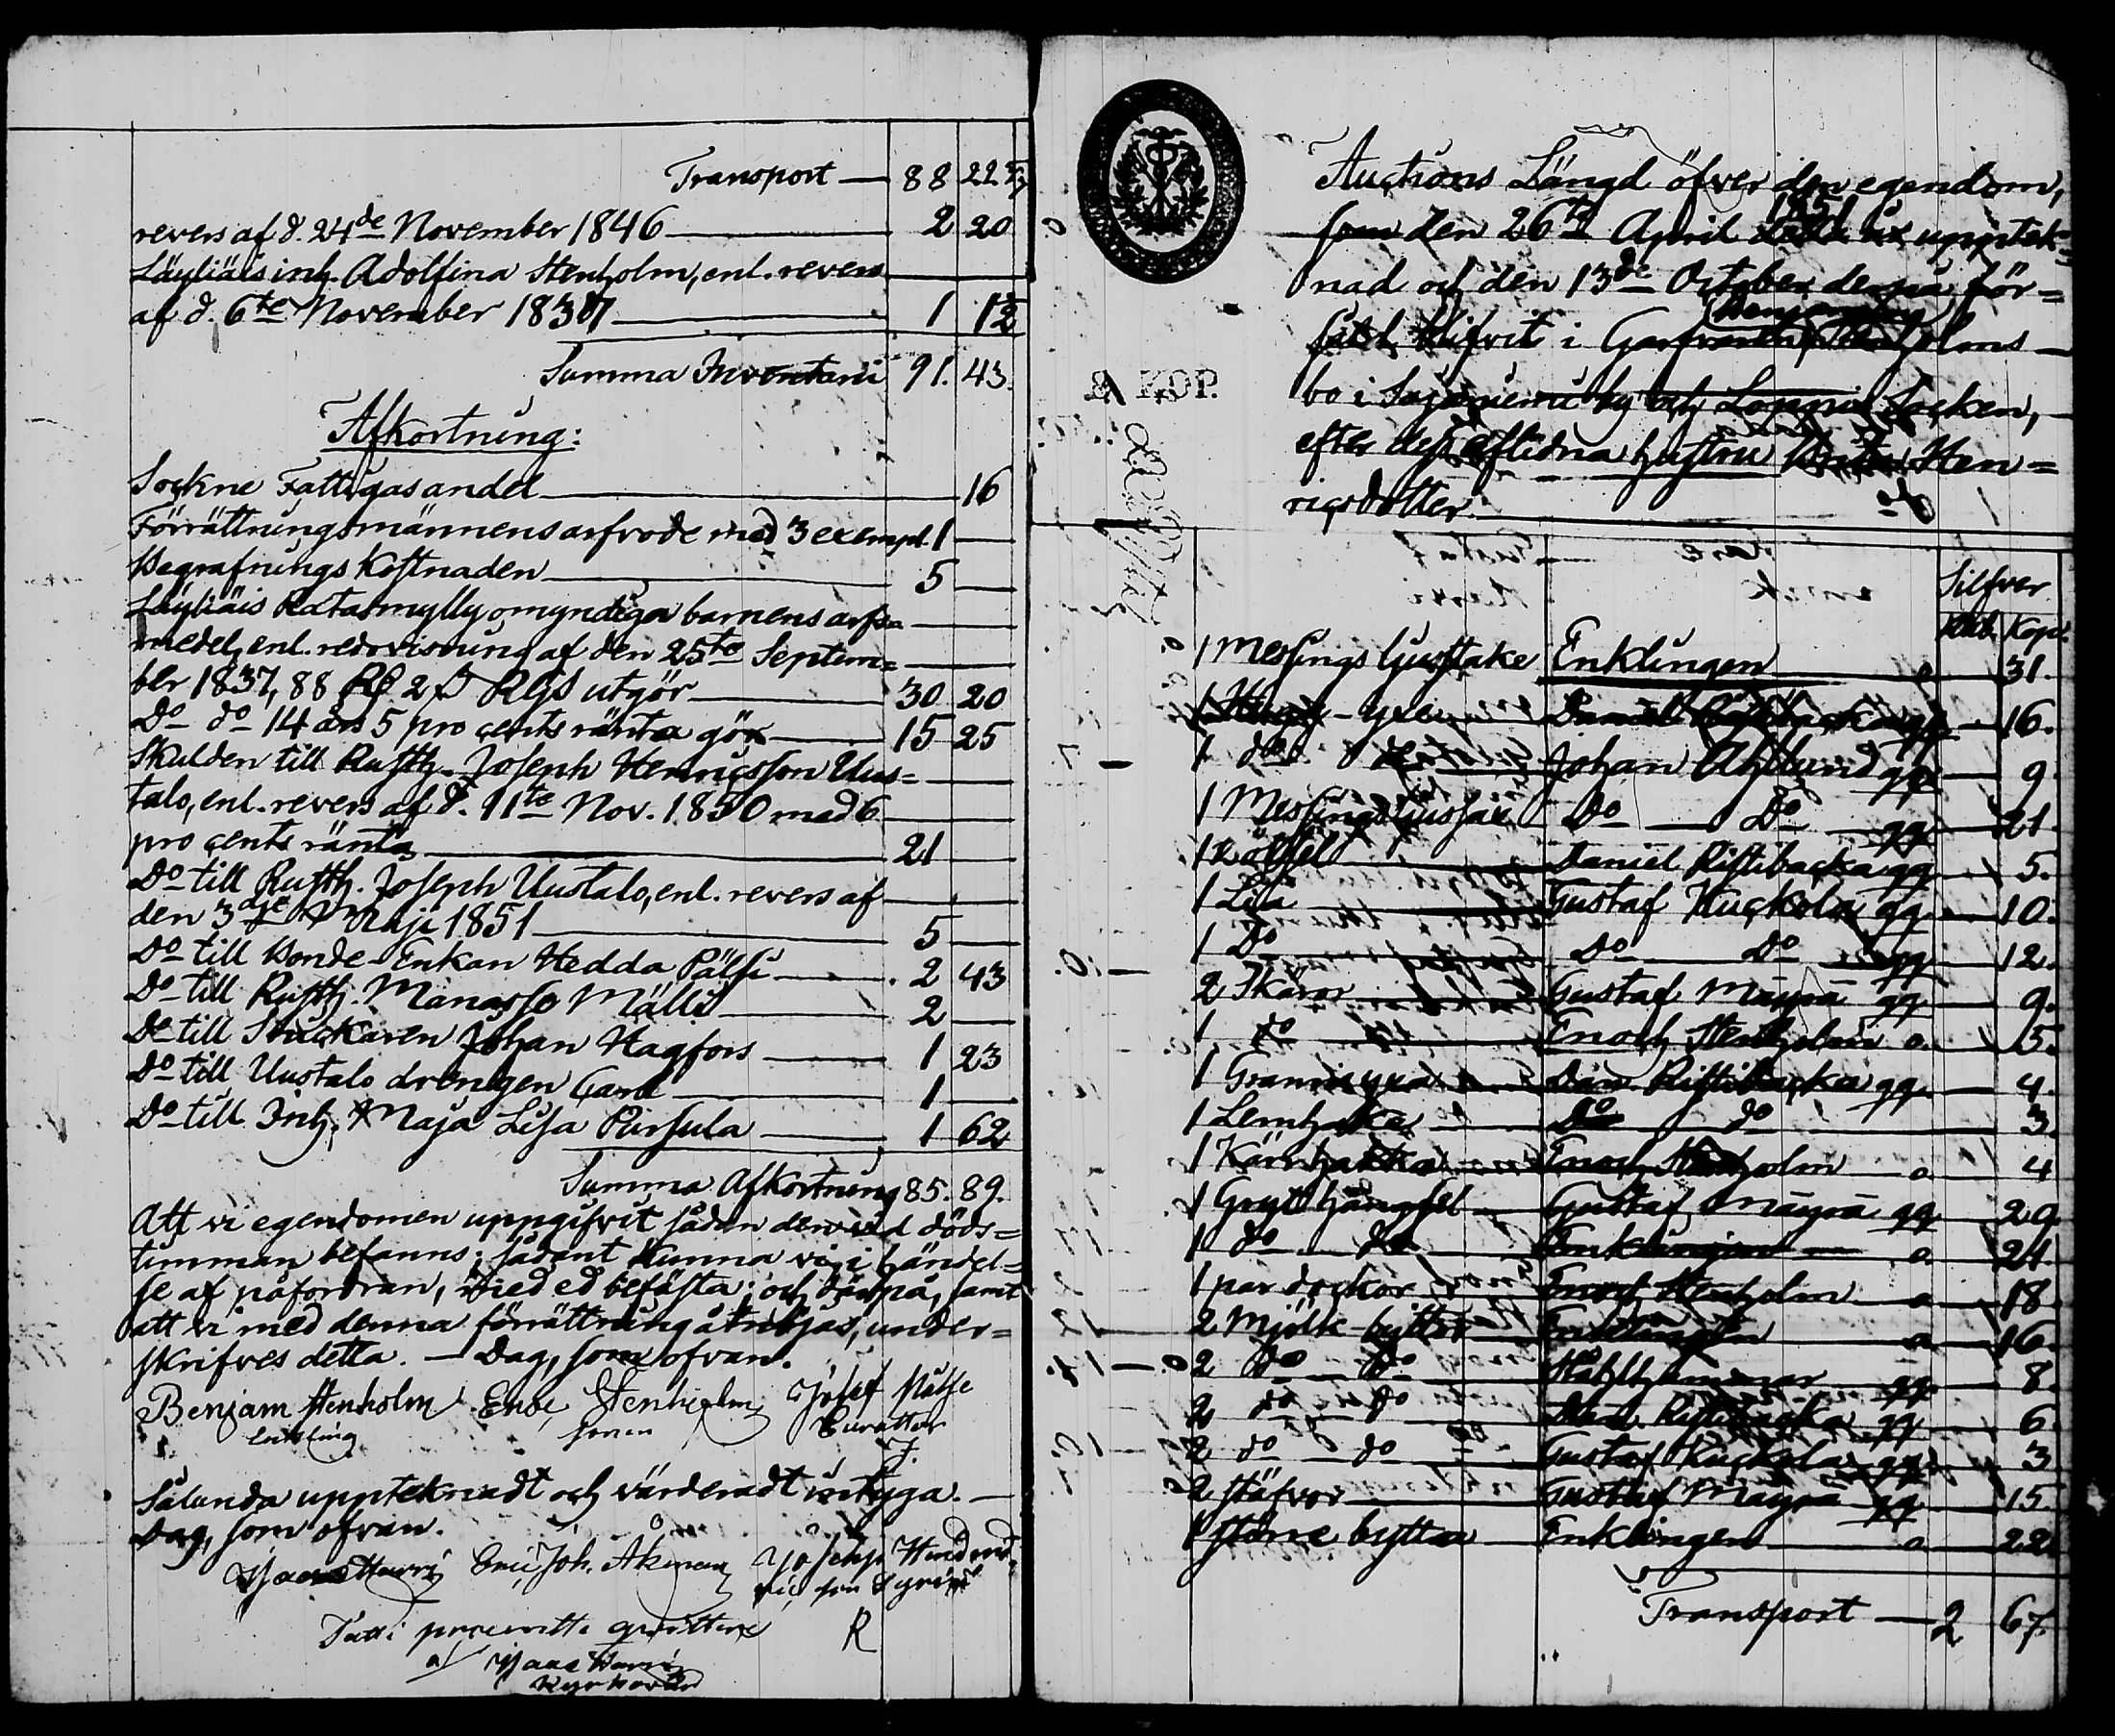 Transport — 88 22 5/7
revers af d. 24de November 1846 — 2 20
Läyliäis inh. Adolfina Stenholm, enl. revers
af d. 6te November 1837 — 1 1/2
Summa Inventarii 91. 43.
Afkortning:
Sockne Fattigas andel — 16
Förrättningsmännens arfvode med 3 exempl. 1 —
Begrafnings Kostnaden — 5 —
Läyliäis Ratasmylly omyndiga barnens arfs=
medel, enl. redovisning af den 25te Septem=
ber 1837, 88 RC 2 ß RGS utgör — 30 20
Do do 14 års 5 pro cents ränta gör — 15 25
Skulden till Rusth. Joseph Henricsson Uus=
talo, enl. revers af d. 11te Nov. 1850 med 6
pro cents ränta — 21 —
Do till Rusth. Joseph Uustalo, enl. revers af
den 3dje Maji 1851 — 5 —
Do till Bonde-Enkan Hedda Pälsi — 2 43
Do till Rusth. Manasse Mälli — 2 —
Do till Snickaren Johan Hagfors — 1 23
Do till Uustalo drengen Carl — 1 —
Do till Inh. Maja Lisa Pirsula — 1 62
Summa Afkortning 85. 89.
Att vi egendomen uppgifvit sådan den vid döds=
timman befanns; sådant kunna vi, i händel=
se af påfordran, med ed befästa; och därpå, samt
att vi med denna förrättning åtnöjas, under=
skrifves detta. — Dag, som ofvan.
Benjam Stenholm Enok Stenholm Josef Pälse
Enkling sonen Curattor
Sålunda upptecknadt och värderadt intyga. —
Dag, som ofvan.
Isaac Harri Eric Joh. Åkman Joseph Hendrid
ric son
Fatti procentte qvitteras R
a/ Isaac Harri
Kyrkovärd
Auctions Längd öfver den egendom,
som den 26te April 1851 upptek=
nad och den 13de October derpå för=
såld blifvit i Garfvaren Benjamin Stenholms
bo i Sajaniemi by och Loppis Socken,
efter dess aflidna hustru Hen=
ricsdotter.
2 KOP.
Silfver
Rub. Kop.
1 Messings ljusstake Enklingen a 31.
1 Hugg-yxe Daniel Ristibacka qq 16.
1 do do Johan Ahllund qq 9
1 Messings ljussax Do Do qq 21
1 Daniel Ristibacka qq 5.
1 Lija Gustaf Kuckola qq 10.
1 Do Do Do qq 12.
2 Skäror Gustaf Mäyrä qq 9.
1 do Enoch Stenholm a 15.
1 Dan. Ristibacka qq 4.
1 Lerhacka Do do 3.
1 Enoch Stenholm a 4
1 Gryt hängsel Gustaf Mäyrä qq 29
1 do do Enklingen a 24.
1 par dockor Enoch Stenholm a 18
2 Mjölk-byttor Enklingen a 16.
2 Do Do Ståhlhammar qq 8.
2 do do Dan. Ristibacka qq 6
2 do do Gustaf Kuckola qq 3
2 stäfvor Gustaf Mäyrä qq 15
1 större bytta Enklingen a 22
Transport — 2 67.